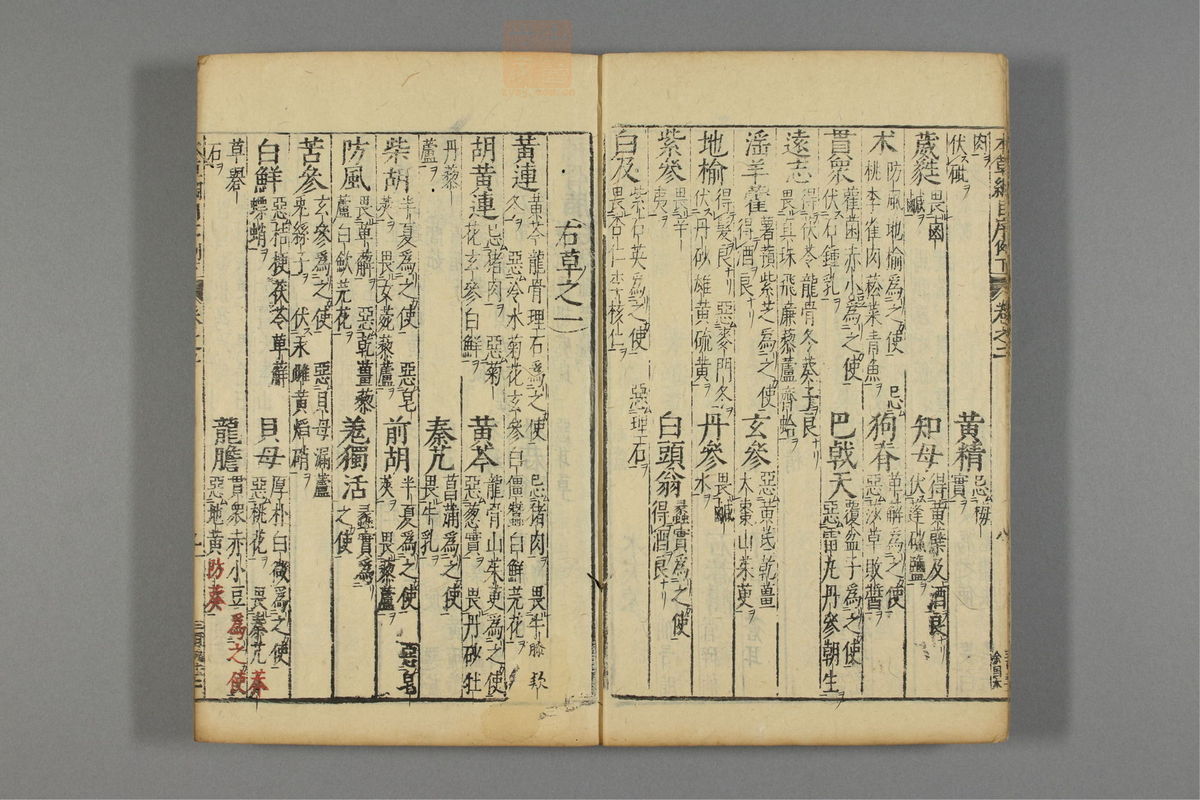 本草綱目序例下 卷之二
肉
伏砒 黃精 忌梅實
葳蕤 畏鹵鹹 知母 得黃蘗及酒良 伏蓬砂鹽
朮 防風地榆爲之使 忌桃李雀肉菘菜青魚 狗脊 萆薢爲之使 惡莎草敗醬
貫衆 雚菌赤小豆爲之使 伏石鍾乳 巴戟天 覆盆子爲之使 惡雷丸丹參朝生
遠志 得伏苓龍骨冬葵子良 畏真珠飛廉藜蘆齊蛤
淫羊藿 薯蕷紫芝爲之使 得酒良 玄參 惡黃茋乾薑大棗山茱萸
地榆 得髮良 惡麥門冬 伏丹砂雄黃硫黃 丹參 畏鹹水
紫參 畏辛夷 白頭翁 蠡實爲之使 得酒良
白及 紫石英爲之使 惡理石 畏杏仁李核仁
右草之一
黃連 黃芩龍骨理石爲之使 忌豬肉 畏牛膝款冬 惡冷水菊花玄參白僵蠶白鮮芫花
胡黃連 忌豬肉 惡菊花玄參白鮮 黃芩 龍骨山茱萸爲之使 惡葱實 畏丹砂牡
丹藜蘆 秦艽 菖蒲爲之使 畏牛乳
柴胡 半夏爲之使 惡皂莢 畏女菀藜蘆 前胡 半夏爲之使 惡皂莢 畏藜蘆
防風 畏萆薢 惡乾薑藜蘆白斂芫花 羌獨活 蠡實爲之使
苦參 玄參爲之使 惡貝母漏蘆兔絲子 伏汞雌黃熖硝
白鮮 惡桔梗茯苓萆薢螵蛸 貝母 厚朴白薇爲之使 惡桃花 畏秦艽莽
草礜石 龍膽 貫衆赤小豆爲之使 惡地黃防葵